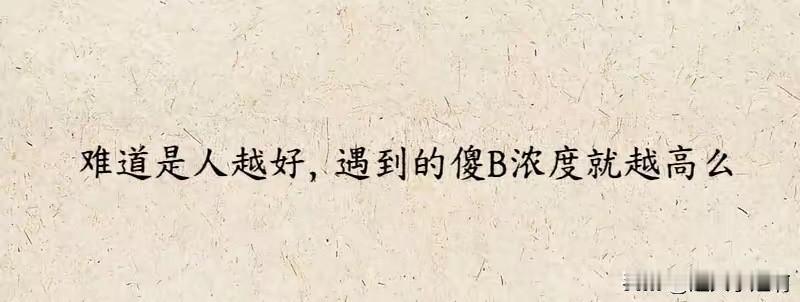 难道是人越好，遇到的傻B浓度就越高么